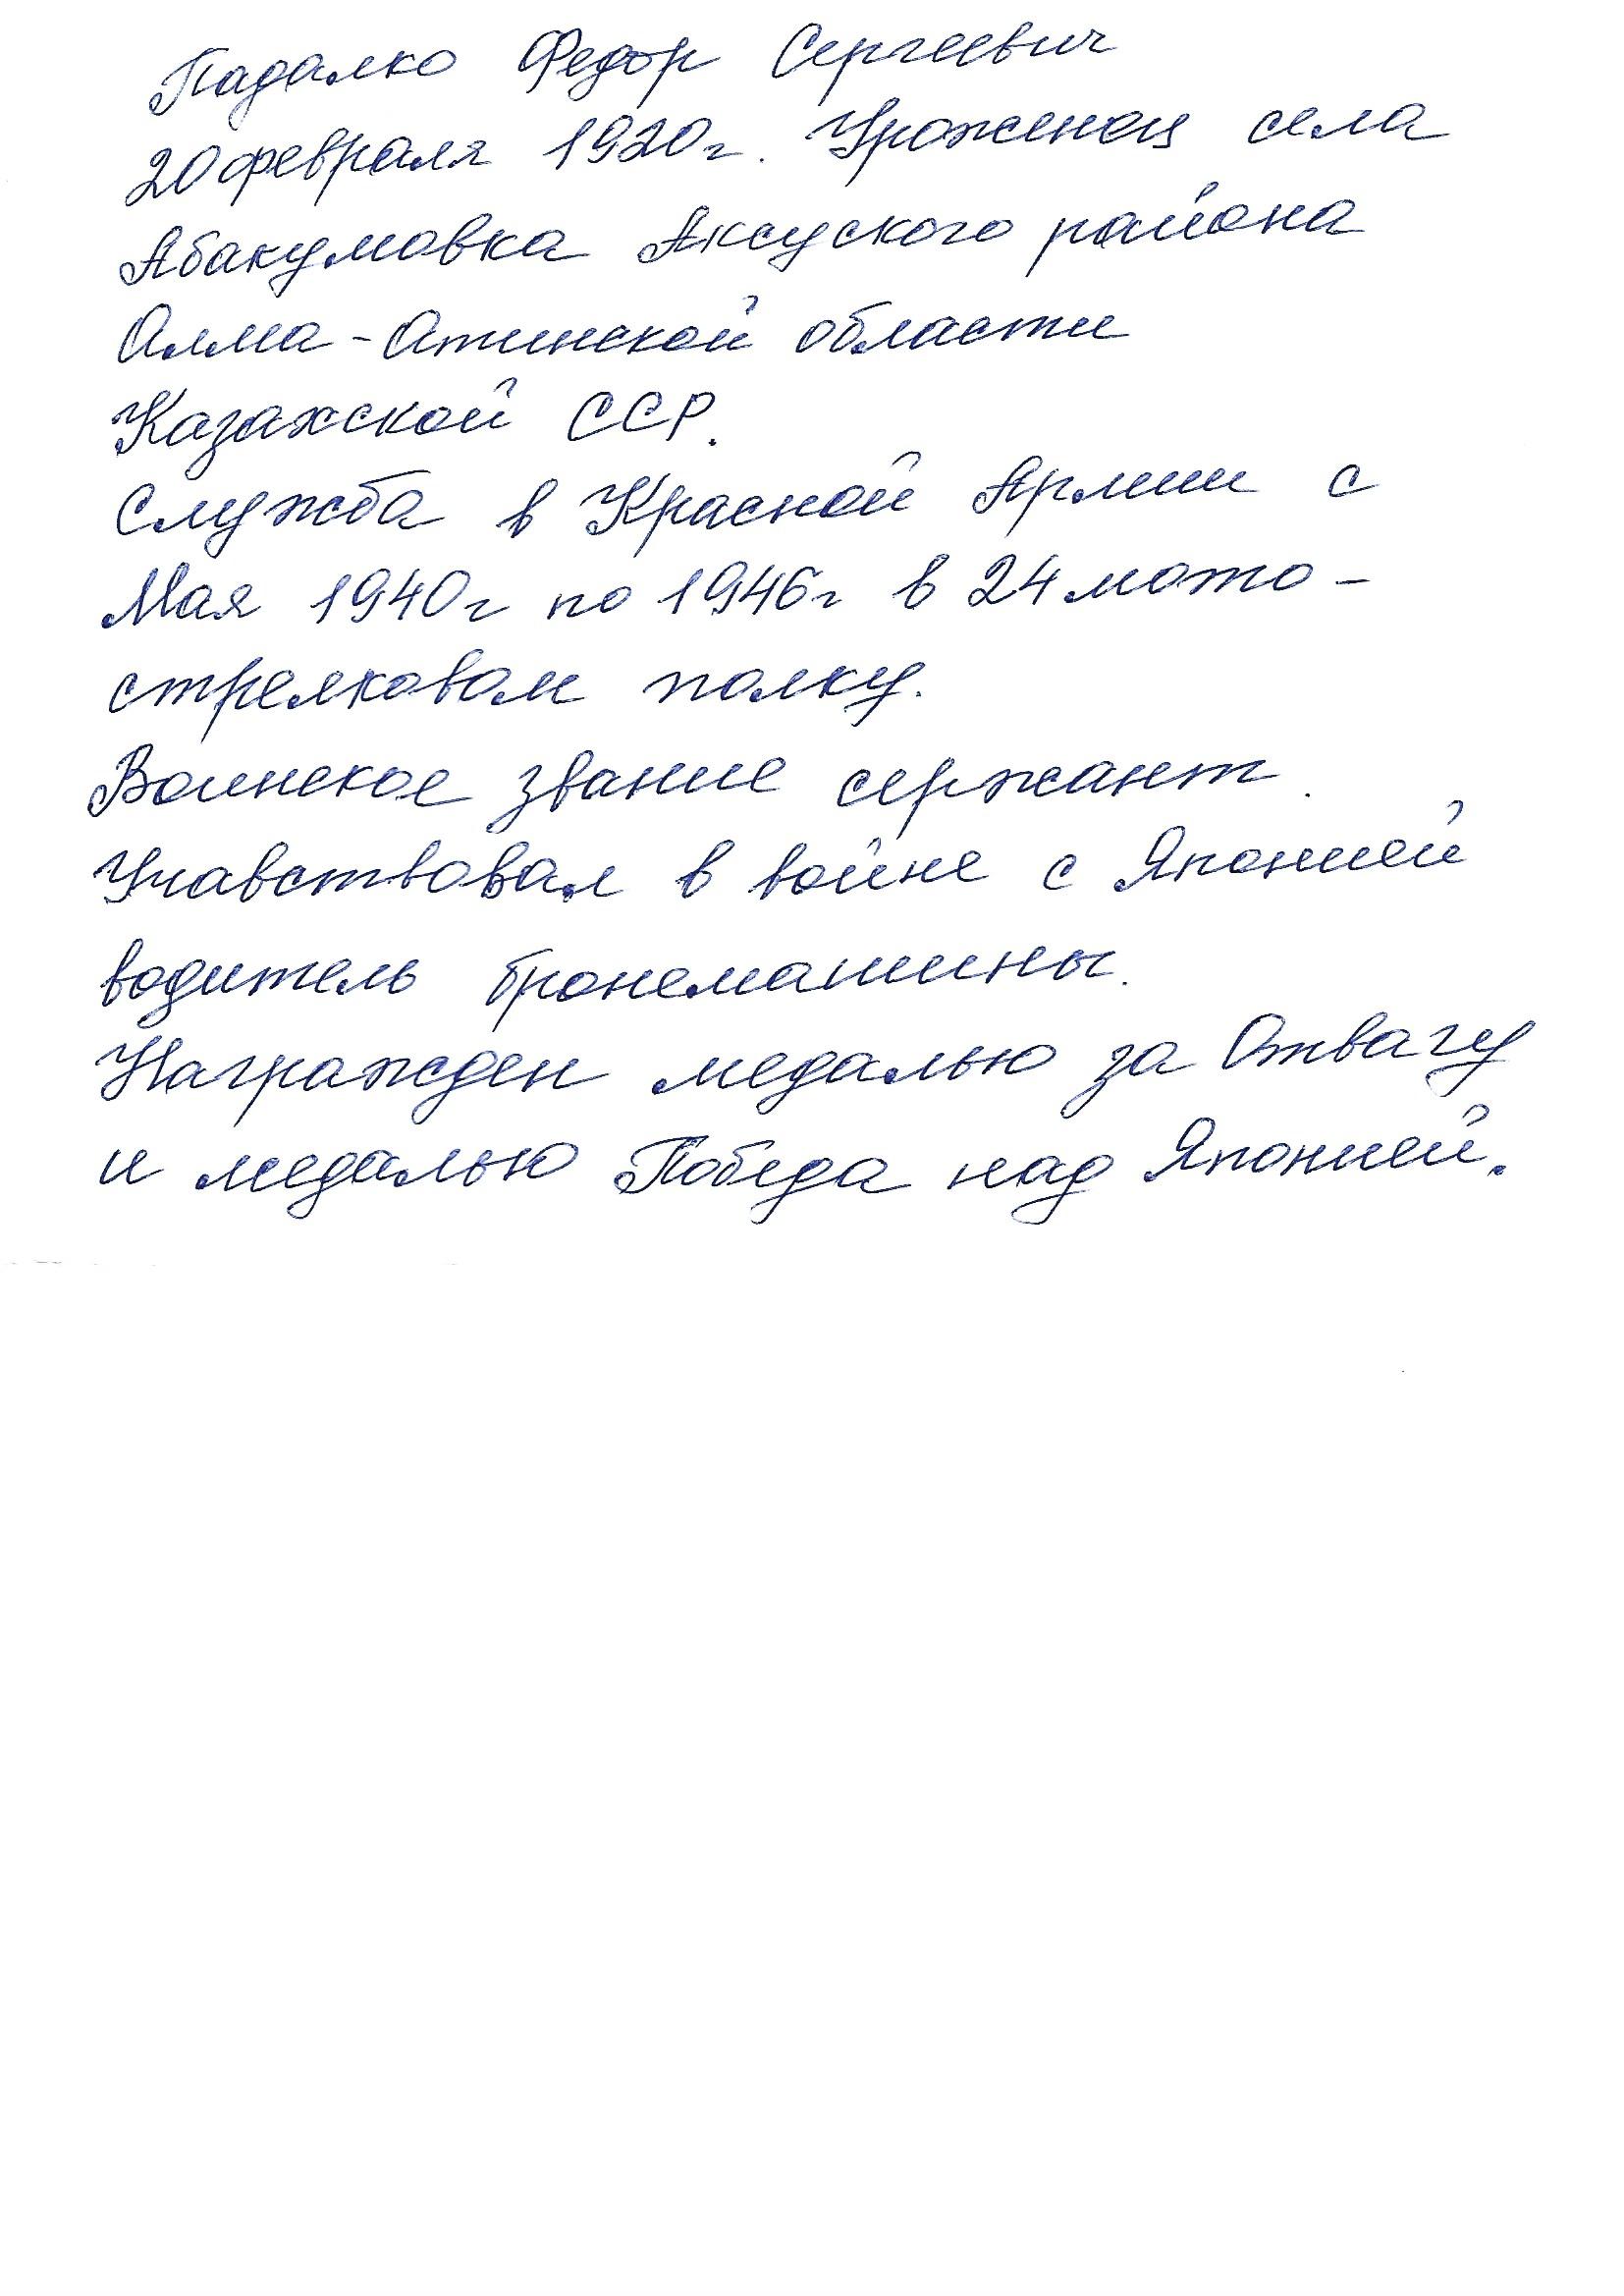 Падалко Федор Сергеевич
20 февраля 1920г. Уроженец села
Абакумовка Аксуского района
Алма-Атинской области
Казахской ССР.
Служба в Красной Армии с
Мая 1940г по 1946г в 24 мото-
стрелковом полку.
Воинское звание сержант.
Учавствовал в войне с Японией
водитель бронемашины.
Награжден медалью за Отвагу
и медалью Победа над Японией.